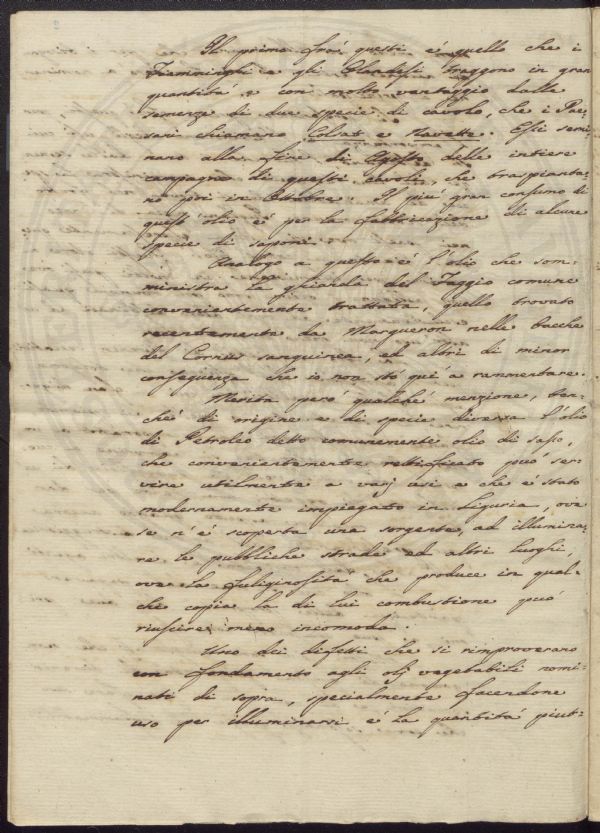 Il primo frà questi é quello che i
Fiamminghi e gli Olandesi traggono in gran
quantitá e con molto vantaggio dalla
semenza di due specie di cavolo, che i Pae-
sani chiamano Colsat e Navette. Essi semi-
nano alla fine di Agosto delle intiere
campagne di questi cavoli, che traspianta-
no poi in Ottobre. Il piú gran consumo di
quest'olio é per la fabbricazione di alcune
specie di saponi.
Analogo a questo é l'olio che som-
ministra la ghianda del Faggio comune
convenientemente trattata, quello trovato
recentemente da Margueron nelle bacche
del Cornus sanguinea, ed altri di minor
conseguenza che io non stó quí a rammentare.
Merita peró qualche menzione, ben-
ché di origine e di specie diversa l'olio
di Petroleo detto comunemente olio di sasso,
che convenientemente rettificato puó ser-
vire utilmente a varj usi e che é stato
modernamente impiegato in Liguria, ove
se n'é scoperta una sorgente, ad illumina-
re le pubbliche strade ed altri luoghi,
ove la fuliginosità che produce in qual-
che copia la di lui combustione puó
riuscire meno incomoda.
Uno dei difetti che si rimproverano
con fondamento agli olj vegetabili nomi-
nati di sopra, specialmente facendone
uso per illuminarsi é la quantitá piut-